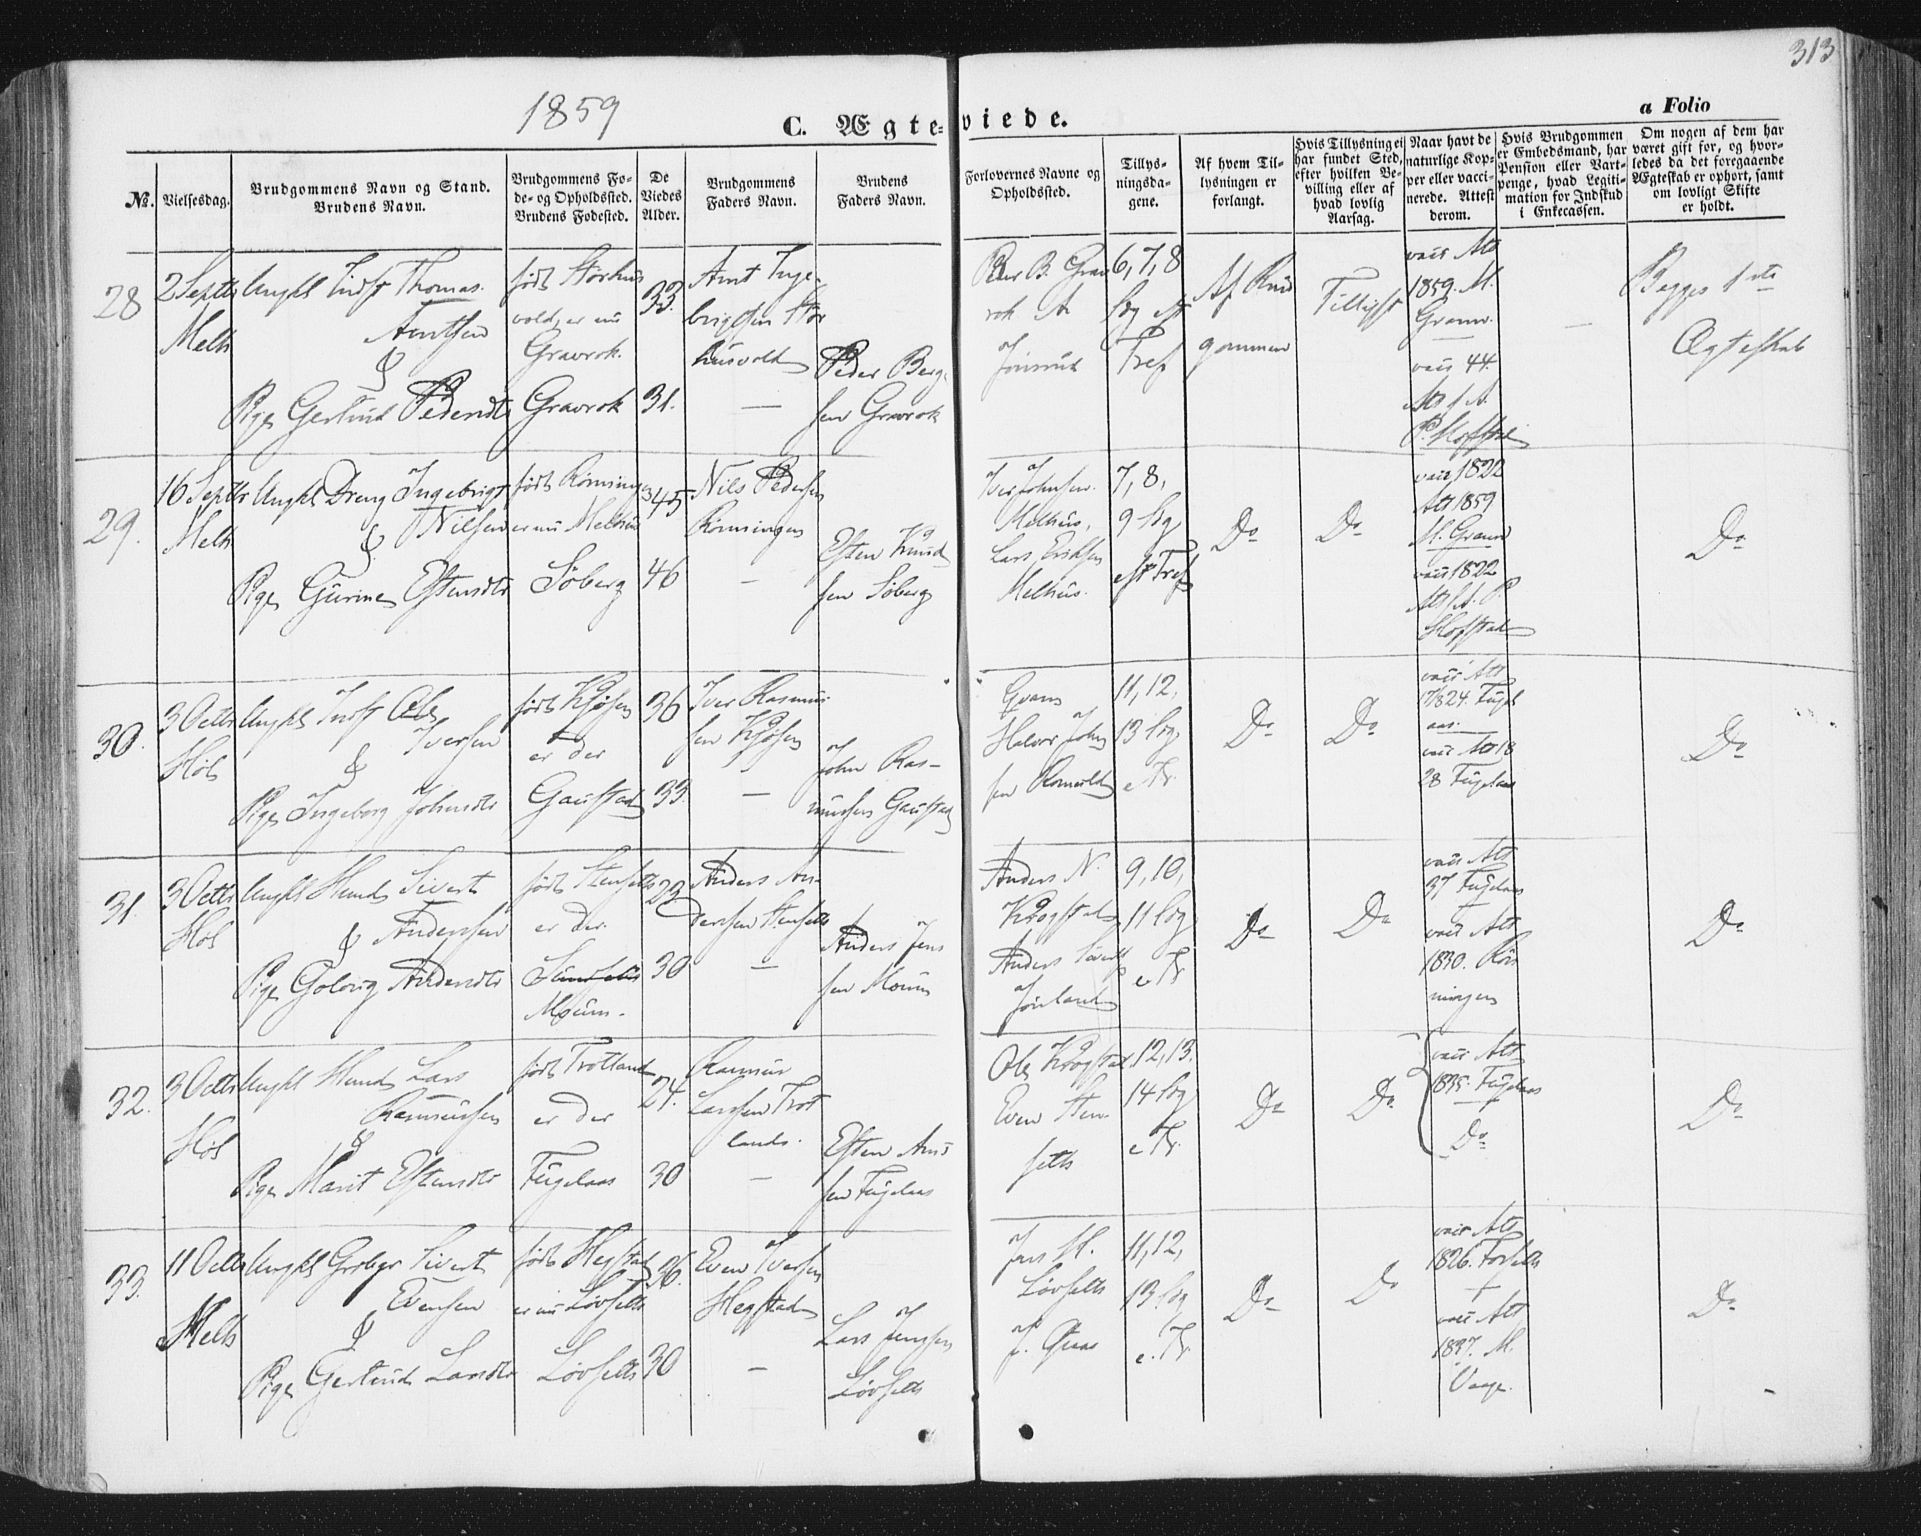 313
1859
C. Ægteviede.
a Folio
№.
Vielsesdag.
Brudgommens Navn og Stand.
Brudens Navn.
Brudgommens Fo-
de- og Opholdssted.
Brudens Fødested.
De
Viedes
Alder.
Brudgommens
Faders Navn.
Brudens
Faders Navn.
Forlovernes Navne og
Opholdssted.
Tillys-
ningsda-
gene.
Af hvem Til-
lysningen er
forlangt.
Hvis Tillysning ei
har fundet Sted,
efter hvilken Be-
villing eller af
hvad lovlig
Aarsag.
Naar havt de
naturlige Kop-
per eller vacci-
nerede. Attest
derom.
Hvis Brudgommen
er Embedsmand, har
Pension eller Vart-
penge, hvad Legiti-
mation for Indskud
i Enkecassen.
Om nogen af dem har
været gift før, og hvor-
ledes da det foregaaende
Ægteskab er ophørt, samt
om lovligt Skifte
er holdt.
28
2 Septbr
Melh
Ungkl Indst Thomas
Arntsen
&
Pige Gertrud Pedersdtr
født Størhus
vold, er nu
Gravrok.
Gravrok
33.
31.
Arnt Inge-
brigtsen Stør
husvold
—
Peder Berg-
sen Gravrok
Peer B. Grav
rok
6, 7, 8
Søg
Tref
Af Brud
gommen
Tillyst
1859. M.
Gram.
vaic 44.
—
Begges 1ste
Ægteskab
29.
16 Septbr
Melh
Ungkl Dreng Ingebrigt
Nilsen
&
Pige Gurine Estensdtr
født Rømingen
er nu Melhus
Søberg
45
46
Nils Pedersen
Rømingen
—
Esten Knud
sen Søberg
Iver Johnsen
Melhus,
Lars Eriksen
Melhus.
7, 8,
9 Søg
eft Tref
Do
Do
vaic 1822
Att 1859
M. Gram
vaic 1822
Hofstad
Do
30.
3 Octbr
Høl
Ungkl Indst Ole
Iversen
&
Pige Ingeborg Johnsdtr
født Kjøsen
er der
Gaustad
36
33.
Iver Rasmus
sen Kjøsen
—
John Ras-
mussen Gaustad
Halvor Johns
sen
11, 12,
13 Søg
e Tr.
Do
Do
vaic Att
1824. Fugl
aas.
vaic Att 18
28 Fuglaas
Do
31.
3 Octbr
Høl
Ungkl Husmd Sivert
Andersen
&
Pige Golovig Andersdtr
født Stensets
er der.
Moum.
23
30
Anders An-
dersen Stensets
—
Anders Jens
sen Moum
Anders N.
Krogstad
Anders Sivert
9, 10,
11 Søg
e Tr
Do
Do
vaic Att
37 Fuglaas
vaic Att
1830. Røi
mingen
Do
32.
3 Octbr
Høl
Ungkl Husmd Lars
Rasmussen
&
Pige Marit Estensdtr
født Trotland
er der
Fuglaas
24.
30
Rasmus
Larssen Trot
lands.
—
Esten Arns
sen Fuglaas
Ole Krogstad
Even Sten
seth
12, 13.
14 Søg
e Tr.
Do
Do
vaic Att
1835. Fuglaas
Do
Do
33.
11 Octbr
Melh
Ungkl Grdbgr Sivert
Evensen
&
Pige Gertrud Larsdtr
født Hegstad
er nu Løvseth
Løvseth
36.
30
Even Iversen
Hegstad
—
Lars Jensen
Løvseth
Jens H.
Løvseth
11, 12,
13 Søg
e. Tr.
Do
Do
vaic Att
1826. Forseth
vaic Att
1837. M.
Vaage.
Do